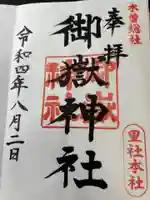 木曽総社
奉拝
御嶽神社
里社本社
令和四年八月二日